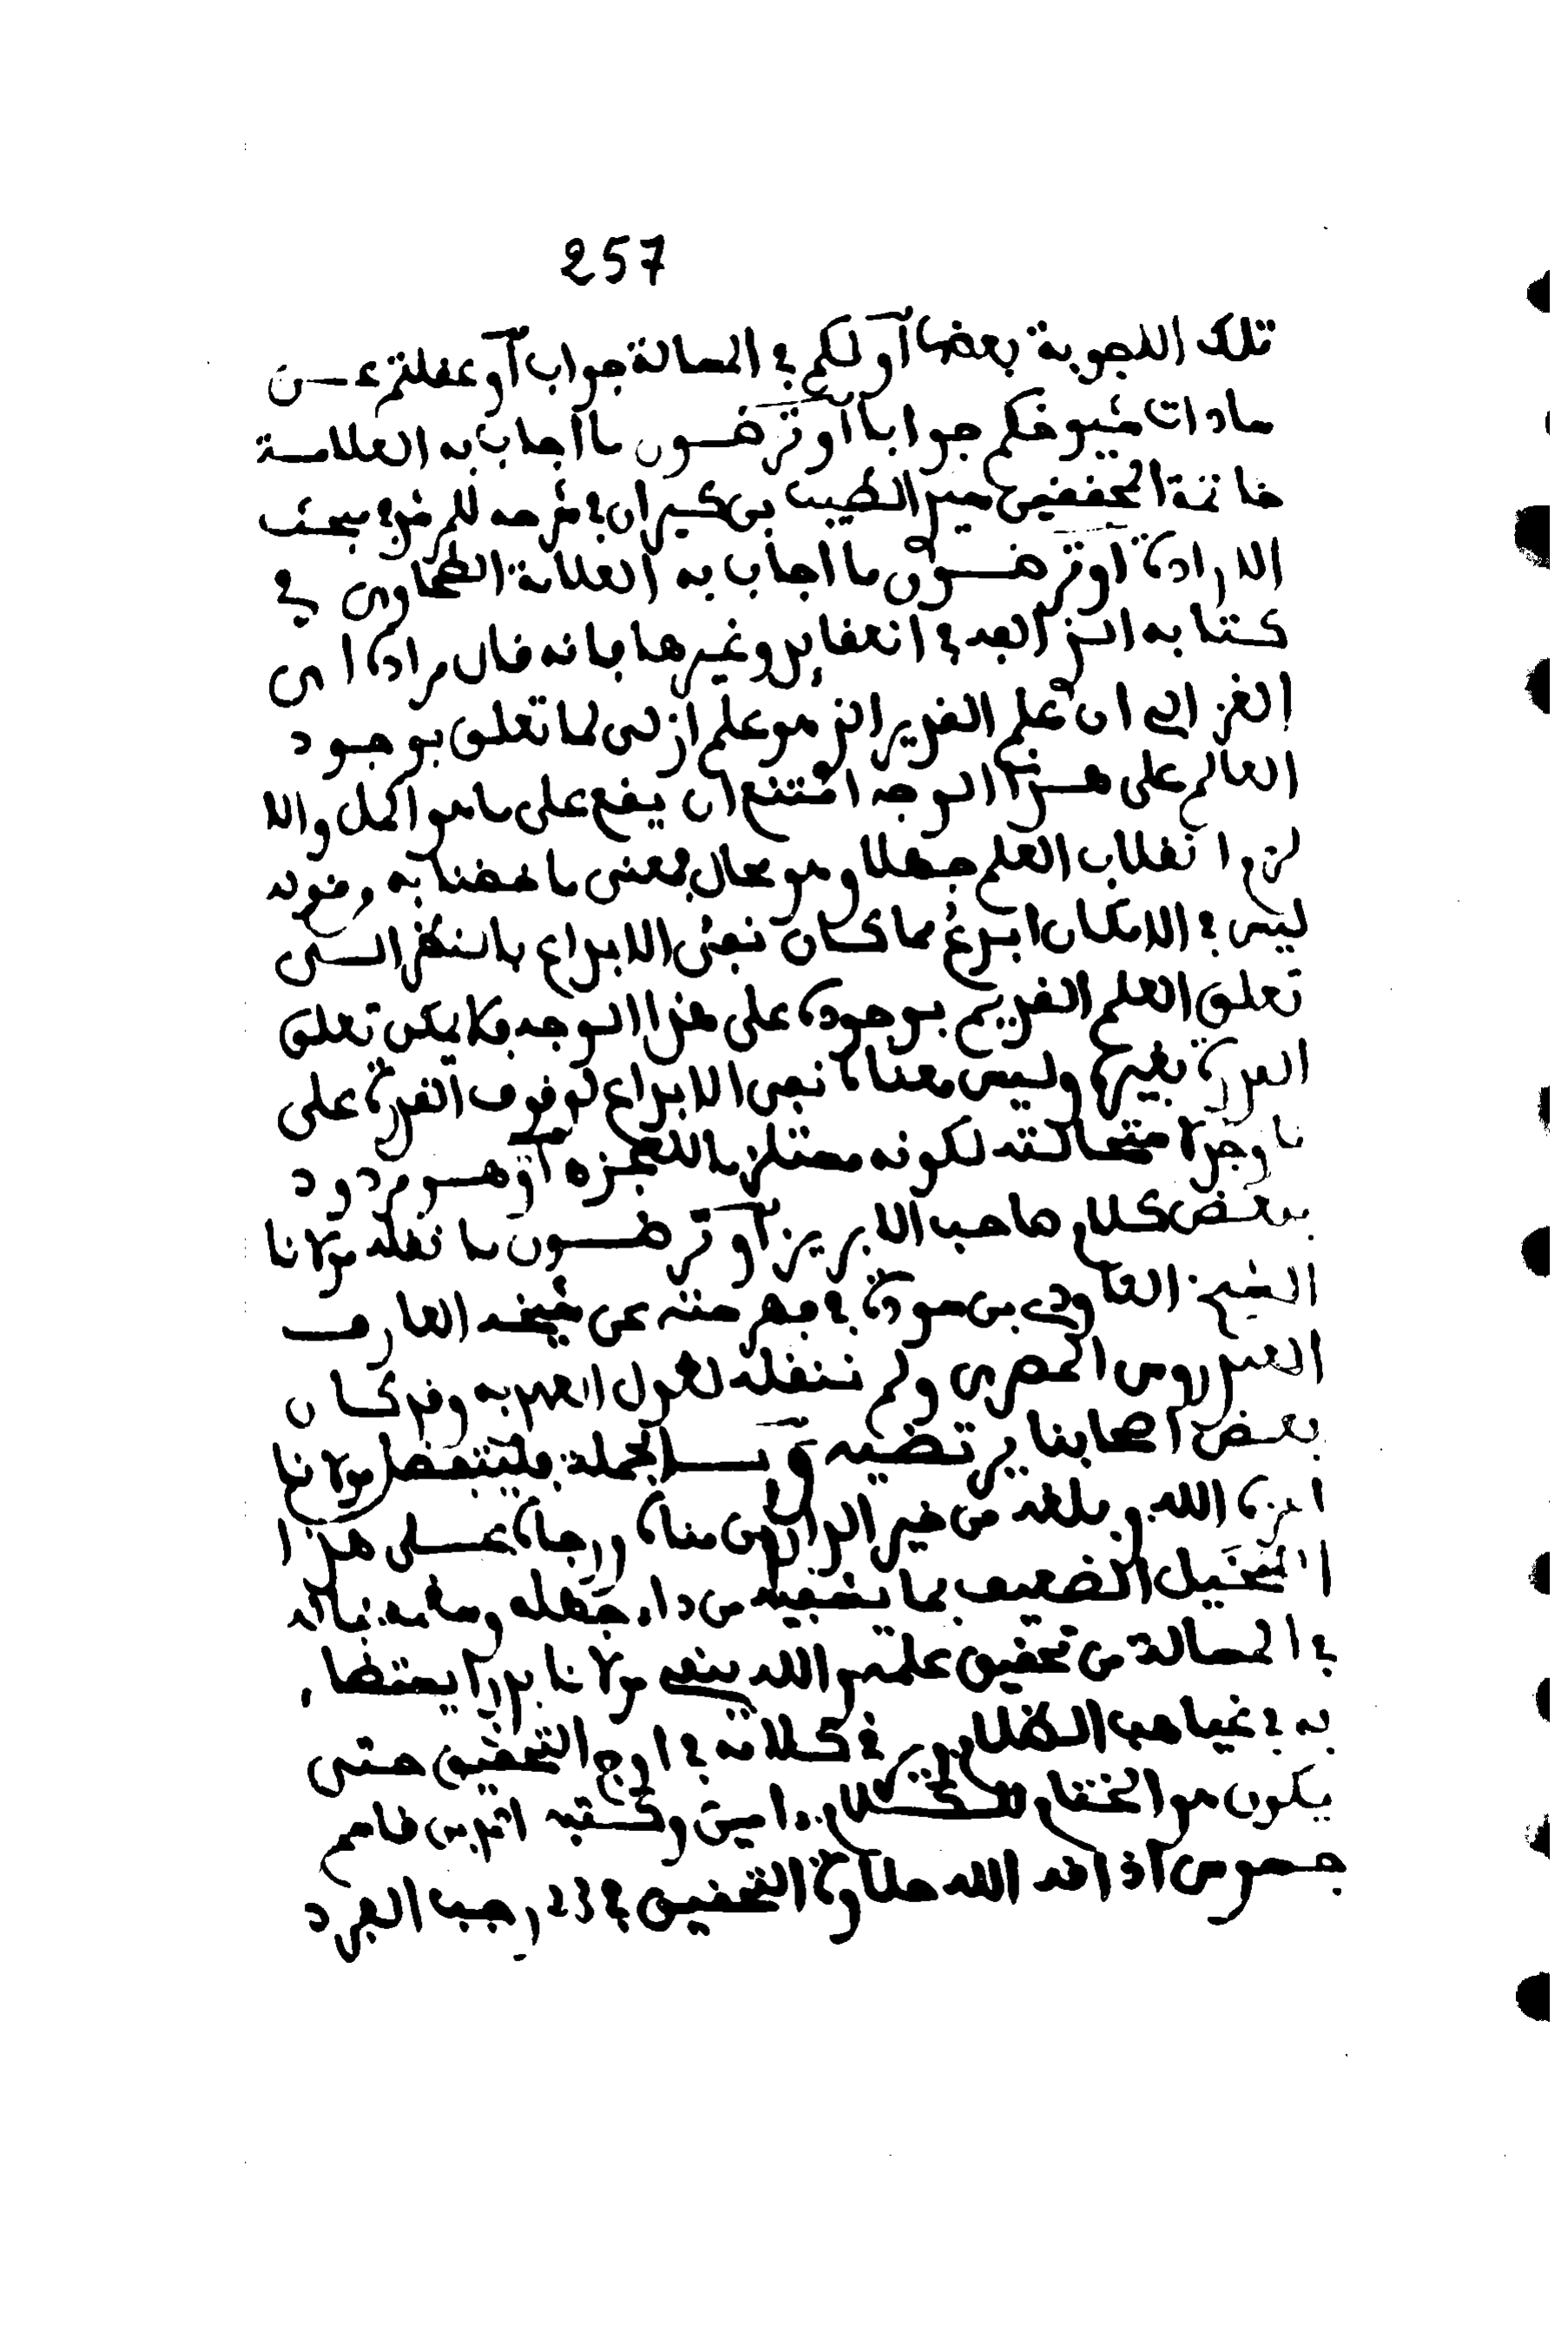 257
تلك الاجوبة بعضها أو لكم في المسالة جواب أو عقلتم عن
سادات شيوخكم جوابا أو ترضون ما اجاب به العلامة
خاتمة المحققين سيد الطيب بن كيران في شرحه للمرشد في مبحث
الارادة او ترضون ما اجاب به العلامة الطحاوي في
كتابه الذي الف في العقايد وغيرها فانه قال مراده اي
الغزالي ان علم القديم الذي هو علم ازلي لما تعلق بوجود
العالم على هذا الوجه امتنع ان يقع على ما هو اكمل والا
لزم انقلاب العلم جهلا وهو محال فمعنى ما خضنا به وقوله
ليس في الامكان ابدع مما كان نفي الابداع بالنظر الى
تعلق العلم القديم بوجوده على هذا الوجه فلا يمكن تعلق
القدرة بغيره وليس معناه نفي الابداع لوقوف القدرة على
ما وجد لاستحالته لكونه مستلزما للعجز ه أو هو مردود
ببعض كلام صاحب الابريز أو ترضون ما نقله مولانا
الشيخ التاودي بن سودة في فهرسته عن شيخه العارف
العيدروس المصري ولم ننقله لطول العهد به وقد كان
بعض اصحابنا يرتضيه وبالجملة فليتفضل مولانا
اعزه الله وبلغه من خير الدارين مناه ورجاه على هذا
النحيل الضعيف بما يشفيه من داء جهله وسقمه فالله
في المسالة من تحقيق علمتم والله يبقي مولانا بدرا يستضاء
به في غياهب الظلام في كلاته في اوج التحقيق حتى
يكون هو المختام الكلام ءامين وكتبه احمد بن قاسم
جسوس اذاقه الله حلاوة التحقيق في 23 رجب الفرد